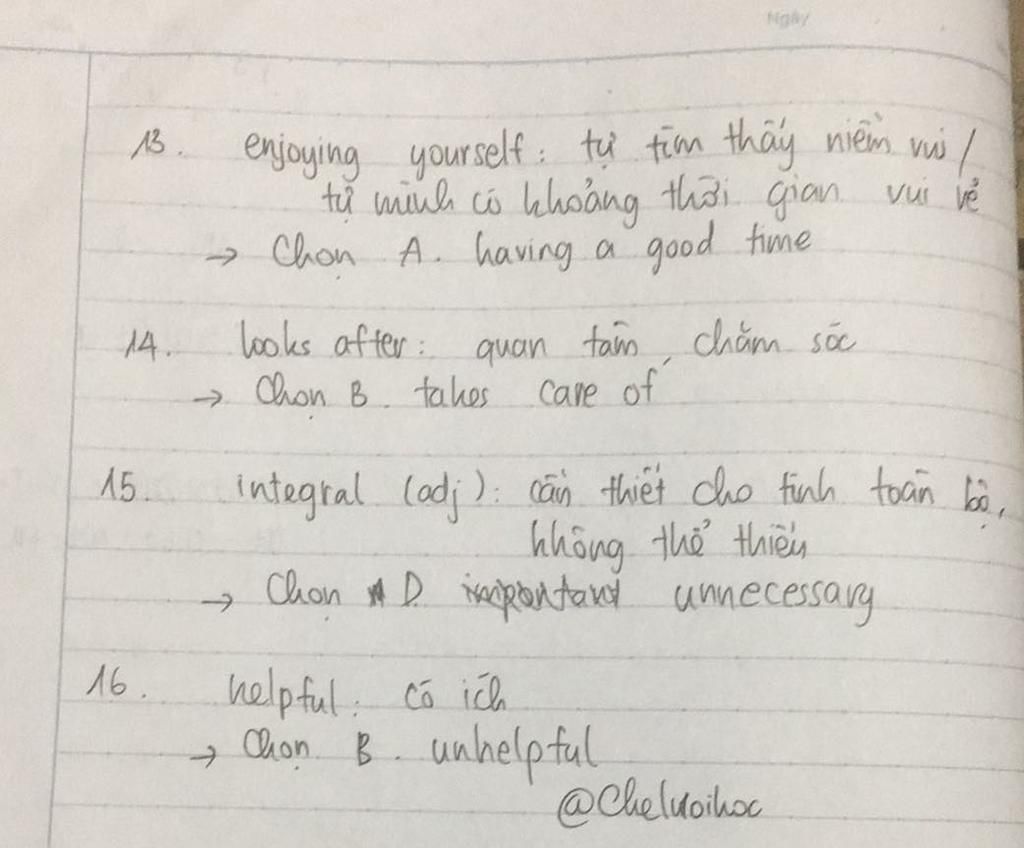 Ngày
13. enjoying yourself: tự tìm thấy niềm vui /
tự mình có khoảng thời gian vui vẻ
→ Chọn A. having a good time
14. looks after: quan tâm, chăm sóc
→ Chọn B. takes care of
15. integral (adj): cần thiết cho tính toàn bộ,
không thể thiếu
→ Chọn D. important unnecessary
16. helpful: có ích
→ Chọn B. unhelpful
@Cheluoihoc